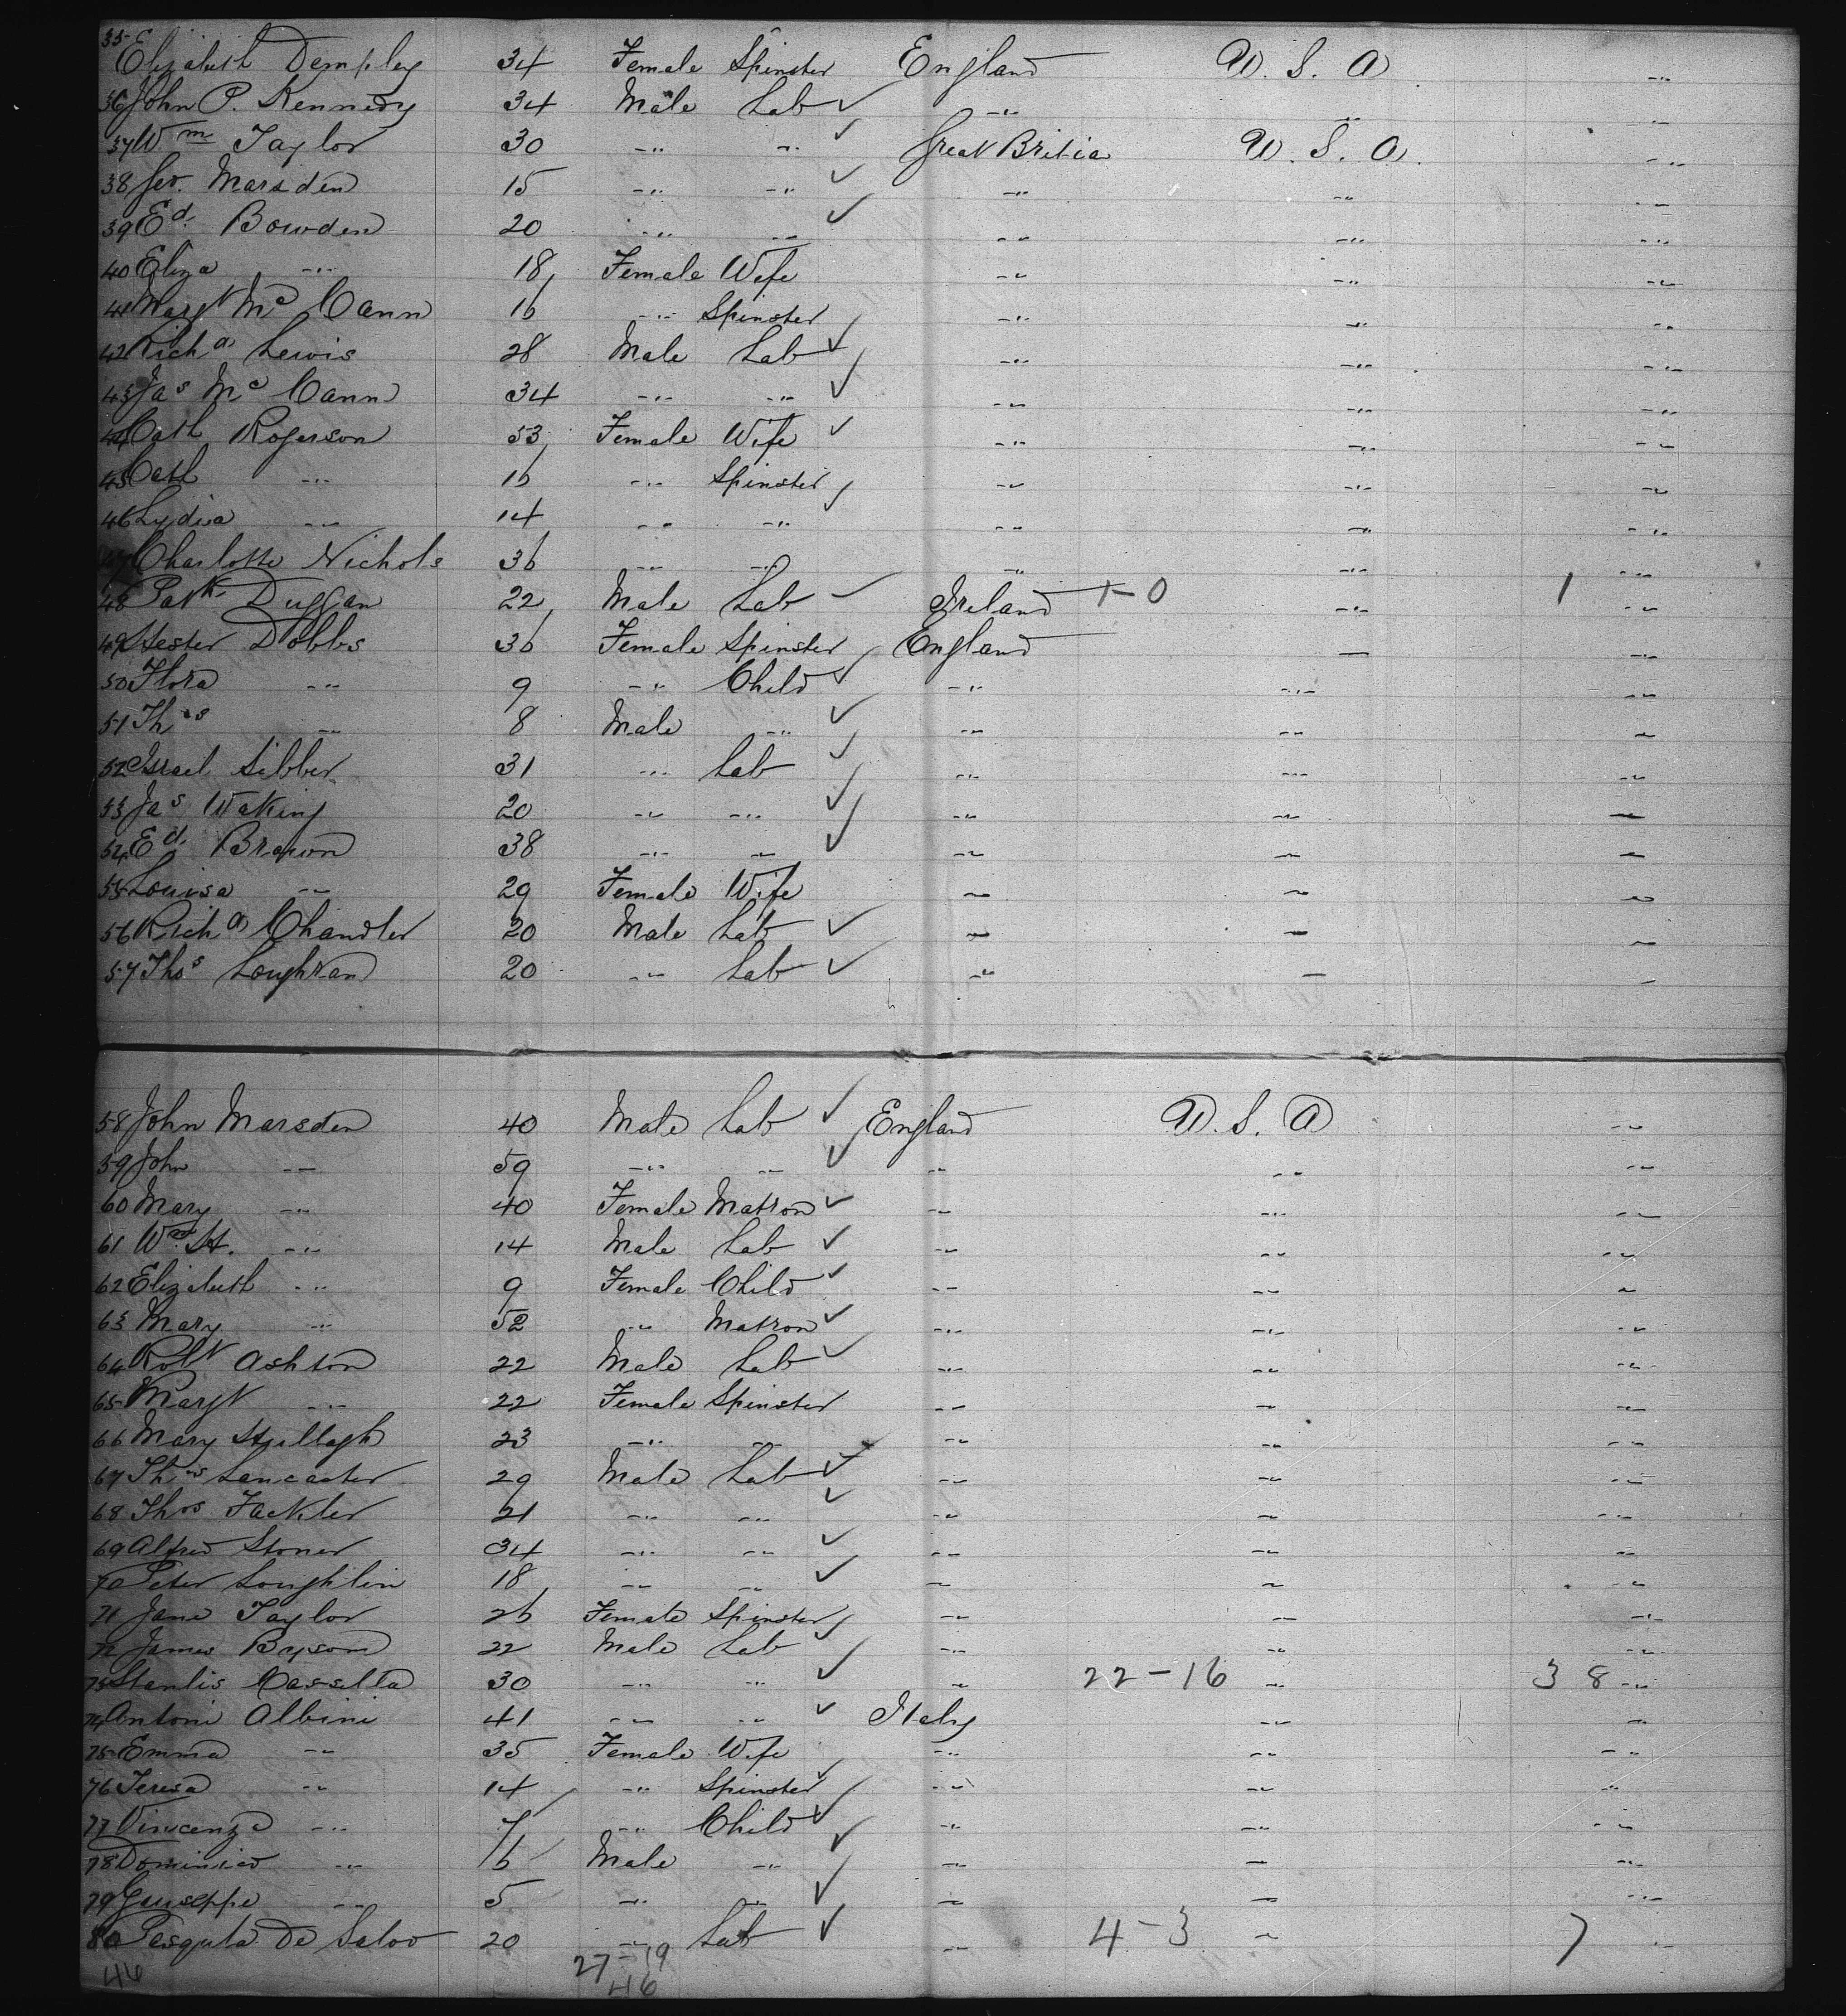 35 Elizabeth Dempley 34 Female Spinster England U. S. A -"-
36 John P. Kennedy 34 Male Lab ✓ -"- -"- -"-
37 Wm Taylor 30 -"- -"- ✓ Great Britia U. S. A. -"-
38 Geo. Marsden 15 -"- -"- ✓ -"- -"- -"-
39 Ed. Bowden 20 -"- -"- ✓ -"- -"- -"-
40 Eliza -"- 18 Female Wife -"- -"- -"-
41 Margt Mc Cann 16 -"- Spinster -"- -"- -"-
42 Richd Lewis 28 Male Lab ✓ -"- -"- -"-
43 Jas Mc Cann 34 -"- -"- ✓ -"- -"- -"-
44 Cath Rogerson 53 Female Wife ✓ -"- -"- -"-
45 Cath -"- 16 -"- Spinster -"- -"- -"-
46 Lydia -"- 14 -"- -"- -"- -"- -"-
47 Charlotte Nichols 36 -"- -"- -"- -"- -"-
48 Patk Duggan 22 Male Lab ✓ Ireland 1-0 -"- 1 -"-
49 Hester Dobbs 36 Female Spinster England — -"-
50 Flora -"- 9 -"- Child ✓ -"- -"- -"-
51 Thos -"- 8 Male -"- ✓ -"- -"- -"-
52 Israel Sibber 31 -"- Lab ✓ -"- -"- -"-
53 Jas Waking 20 -"- -"- ✓ -"- -"- -"-
54 Ed. Brown 38 -"- -"- ✓ -"- -"- -"-
55 Louisa -"- 29 Female Wife -"- -"- -"-
56 Richd Chandler 20 Male Lab ✓ -"- -"- -"-
57 Thos Loughran 20 -"- Lab ✓ -"- — -"-
58 John Marsden 40 Male Lab ✓ England U. S. A -"-
59 John -"- 59 -"- -"- ✓ -"- -"- -"-
60 Mary -"- 40 Female Matron ✓ -"- -"- -"-
61 Wm H. -"- 14 Male Lab ✓ -"- -"- -"-
62 Elizabeth -"- 9 Female Child ✓ -"- -"- -"-
63 Mary -"- 52 -"- Matron ✓ -"- -"- -"-
64 Robt Ashton 22 Male Lab ✓ -"- -"- -"-
65 Margt -"- 22 Female Spinster -"- -"- -"-
66 Mary 23 -"- -"- -"- -"- -"-
67 Thos Lancaster 29 Male Lab ✓ -"- -"- -"-
68 Thos Fackler 21 -"- -"- ✓ -"- -"- -"-
69 Alfred Stoner 34 -"- -"- ✓ -"- -"- -"-
70 Peter Loughlin 18 -"- -"- ✓ -"- -"- -"-
71 Jane Taylor 26 Female Spinster -"- -"- -"-
72 James Bryson 22 Male Lab ✓ -"- -"- -"-
73 Stanlis Cassella 30 -"- -"- ✓ -"- 22-16 -"- 38 -"-
74 Antoni Albini 41 -"- -"- ✓ Italy -"- -"-
75 Emma -"- 35 Female Wife -"- -"- -"-
76 Teresa -"- 14 -"- Spinster ✓ -"- -"- -"-
77 Vincenza -"- 7 -"- Child ✓ -"- -"- -"-
78 Dominico -"- 6 Male -"- ✓ -"- -"- -"-
79 Guiseppe -"- 5 -"- -"- ✓ -"- -"- -"-
80 Pesquta De Salvo 20 -"- Lab ✓ -"- 4-3 -"- 7 -"-
46 27-19
46